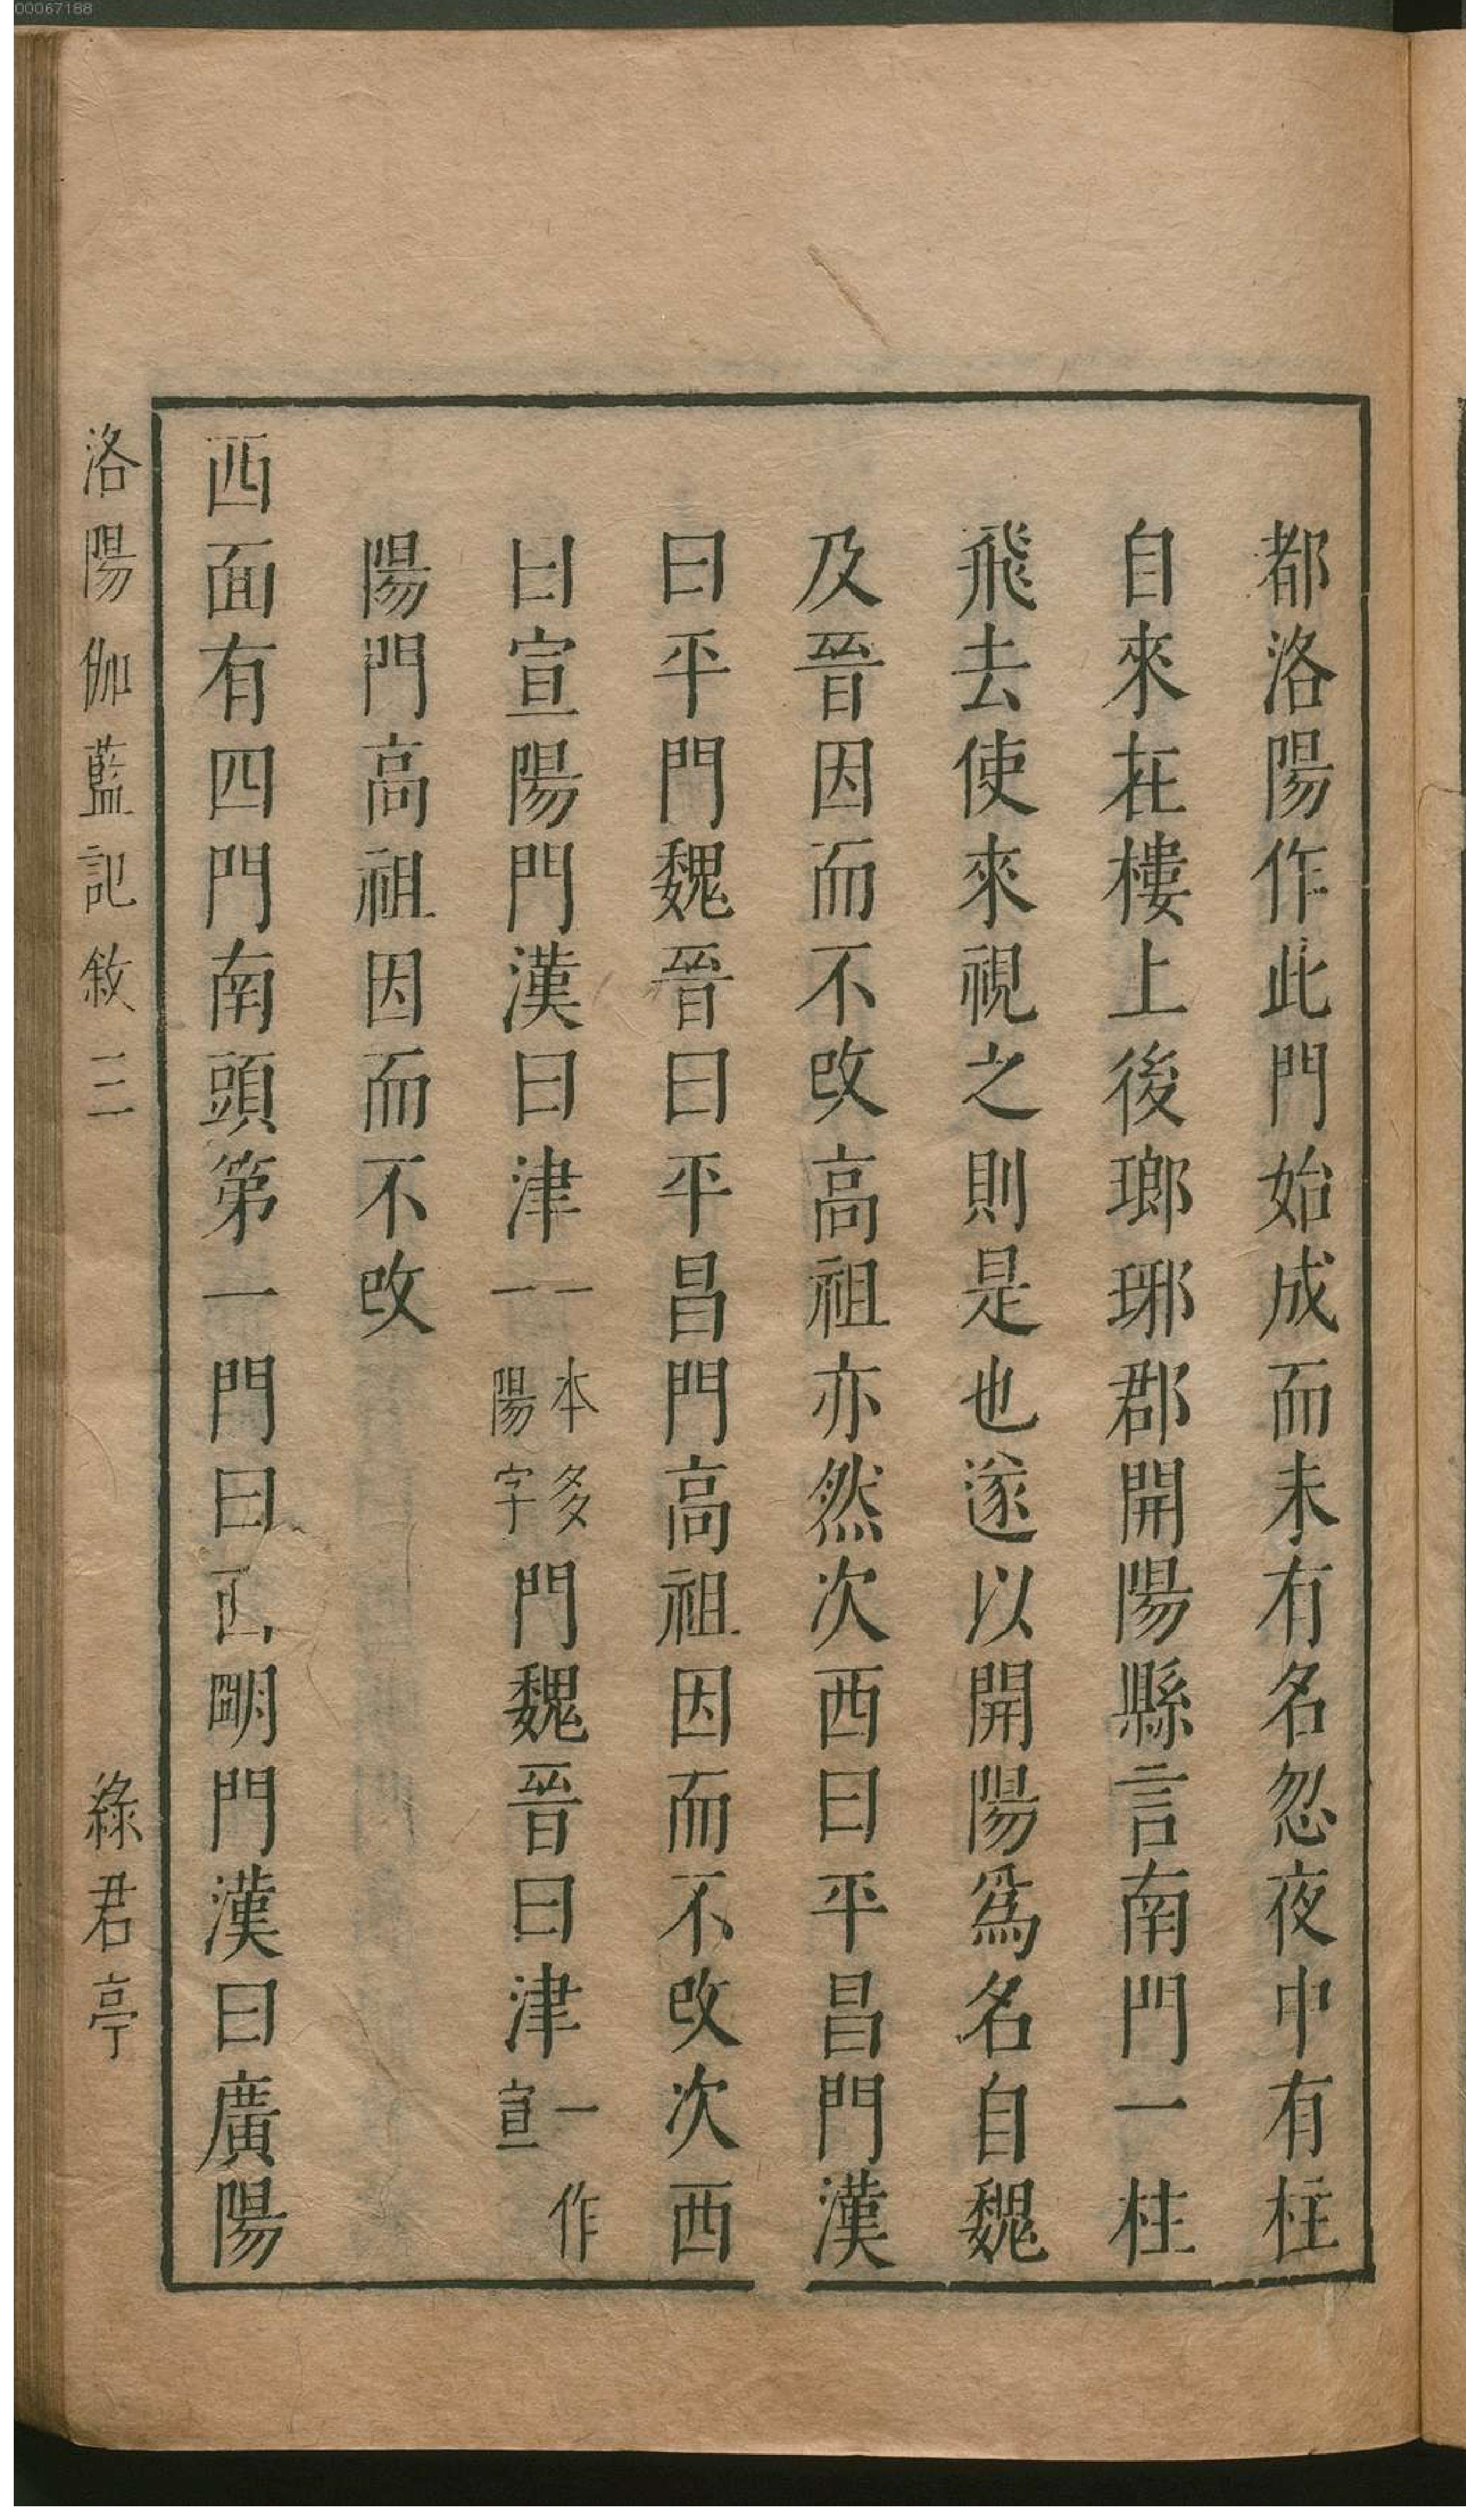 00067188
都洛陽作此門始成而未有名忽夜中有柱
自來在樓上後瑯琊郡開陽縣言南門一柱
飛去使來視之則是也遂以開陽爲名自魏
及晉因而不改高祖亦然次西曰平昌門漢
曰平門魏晉曰平昌門高祖因而不改次西
曰宣陽門漢曰津一本多一陽字門魏晉曰津一作宣
陽門高祖因而不改
西面有四門南頭第一門曰西明門漢曰廣陽
洛陽伽藍記敘 三 綠君亭